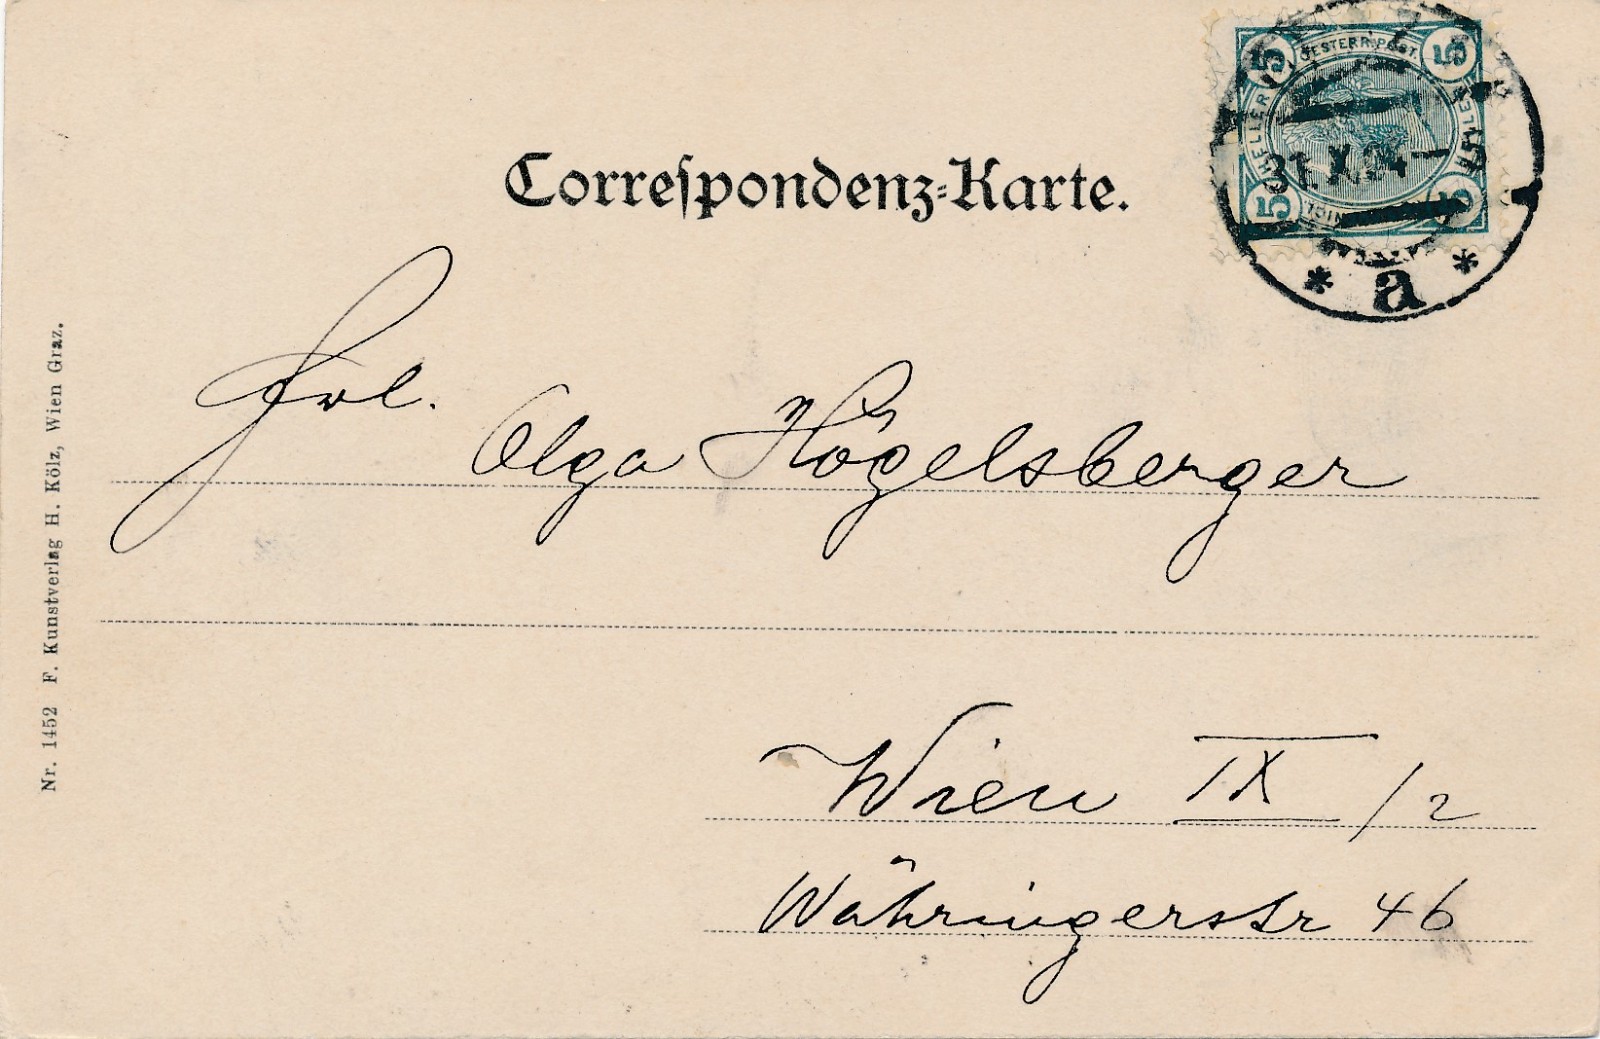 Correspondenz-Karte.
5 OESTERR. POST. 5
HELLER HELLER
31. X. 04
5 5
* a *
Frl. Olga Högelsberger
Wien IX/2
Währingerstr 46
Nr. 1452 F. Kunstverlag H. Kölz, Wien Graz.